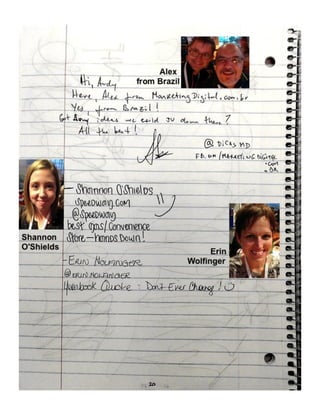 Alex
from Brazil
Hi, Andy
Here, Alex from MarketingDigital.com.br
Yes, from Brazil!
Got Any ideas we could JV down there?
All the best!
@ DICAS MD
FB.COM/MARKETINGDIGITAL
.COM
.BR
Shannon
O'Shields
- Shannon O'Shields
speedway.com
@speedway
best gas/convenience
store - hands down!
Erin
Wolfinger
- ERIN WOLFINGER
@ERINWOLFINGER
Yearbook Quote: Don't Ever Change!
20